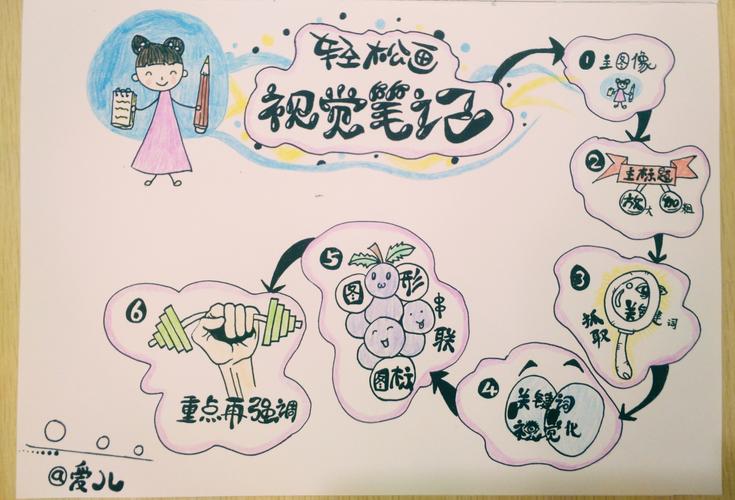 轻松画
视觉笔记
1 主图像
2 主标题
放大 加粗
3 抓取 关键词
4 关键词
视觉化
5 图形
串联
图标
6 重点再强调
@爱儿